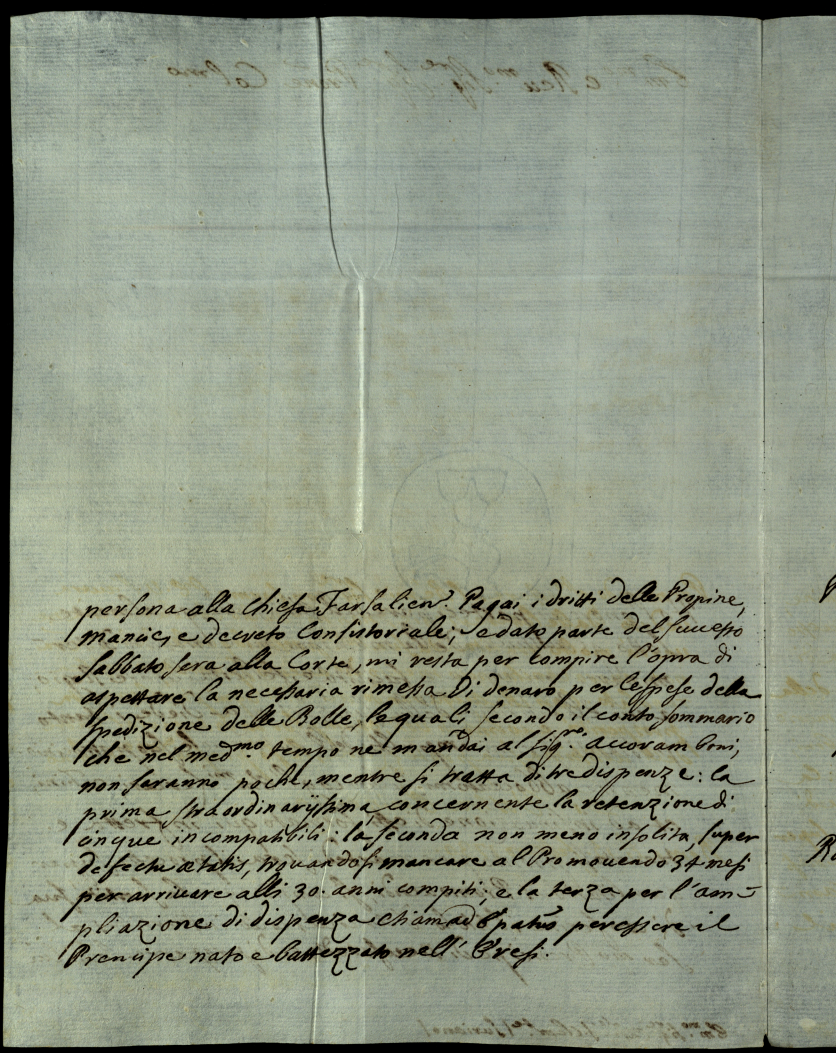 persona alla Chiesa Farsalien. Pagai i dritti delle Propine,
mancie, e decreto Consistoriale; e dato parte del successo
sabbato sera alla Corte, mi resta per compire l'opra di
aspettare la necessaria rimessa di denaro per le spese della
spedizione delle Bolle, le quali secondo il conto sommario
che nel med.mo tempo ne mandai al sig.re Accoramboni,
non saranno poche, mentre si tratta di tre dispenze: la
prima straordinarijssima, concernente la retenzione di
cinque incompatibili: la seconda non meno insolita, super
defectu ætatis, trovandosi mancare al Promovendo 34 mesi
per arrivare alli 30. anni compiti; e la terza per l'am-
pliazione di dispenza etiam ad Ep̃atus per essere il
Prencipe nato e battezzato nell'Eresi.